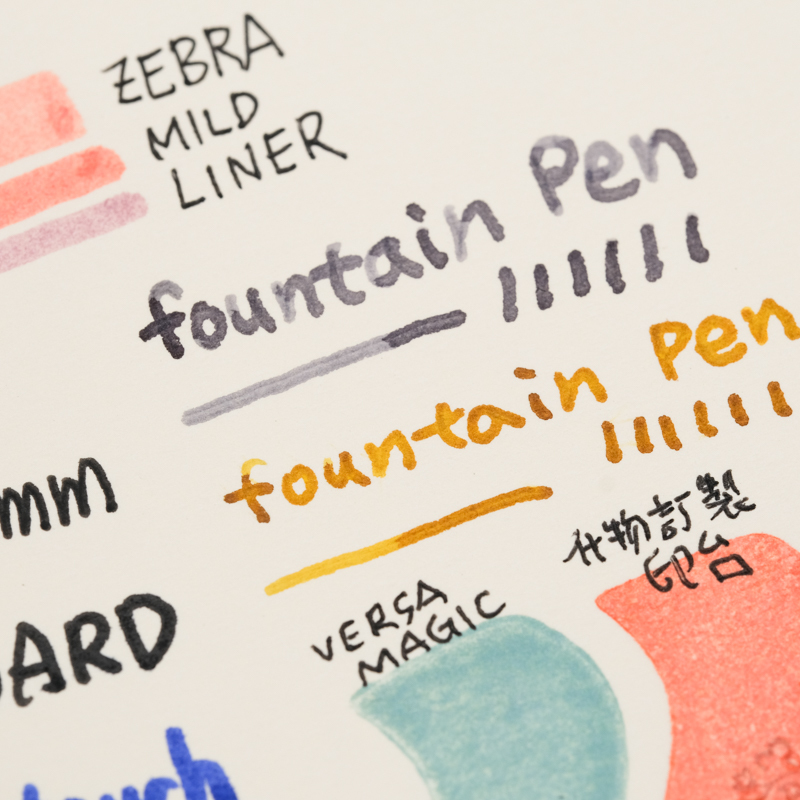 ZEBRA
MILD
LINER
fountain Pen
fountain Pen
mm
什物訂製
印台
VERSA
MAGIC
ARD
ouch